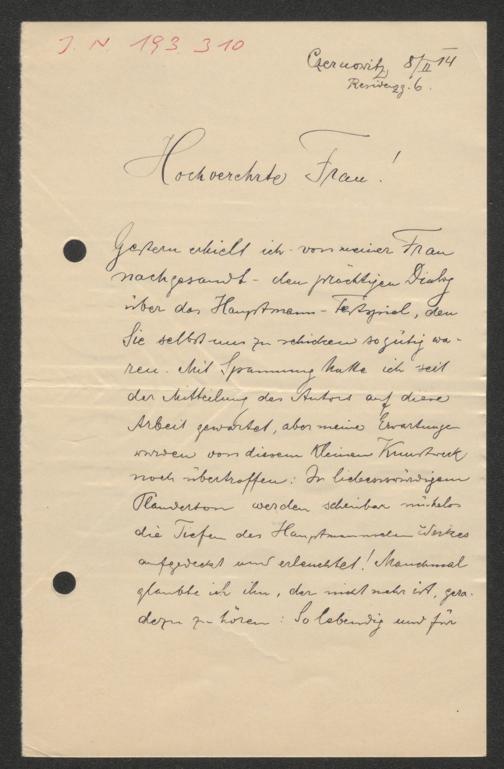 J. N. 193 310
Czernowitz 8/II 14
Residenzg. 6.
Hochverehrte Frau!
Gestern erhielt ich von meiner Frau
nachgesandt - den prächtigen Dialog
über das Hauptmann-Festspiel, den
Sie selbst uns zu schicken so gütig wa-
ren. Mit Spannung hatte ich seit
der Mitteilung des Autors auf diese
Arbeit gewartet, aber meine Erwartungen
wurden von diesem kleinen Kunstwerk
noch übertroffen: In liebenswürdigem
Plauderton werden scheinbar mühelos
die Tiefen des Hauptmannschen Werkes
aufgedeckt und erleuchtet! Manchmal
glaubte ich ihn, der nicht mehr ist, gera-
dezu zu hören: So lebendig und für